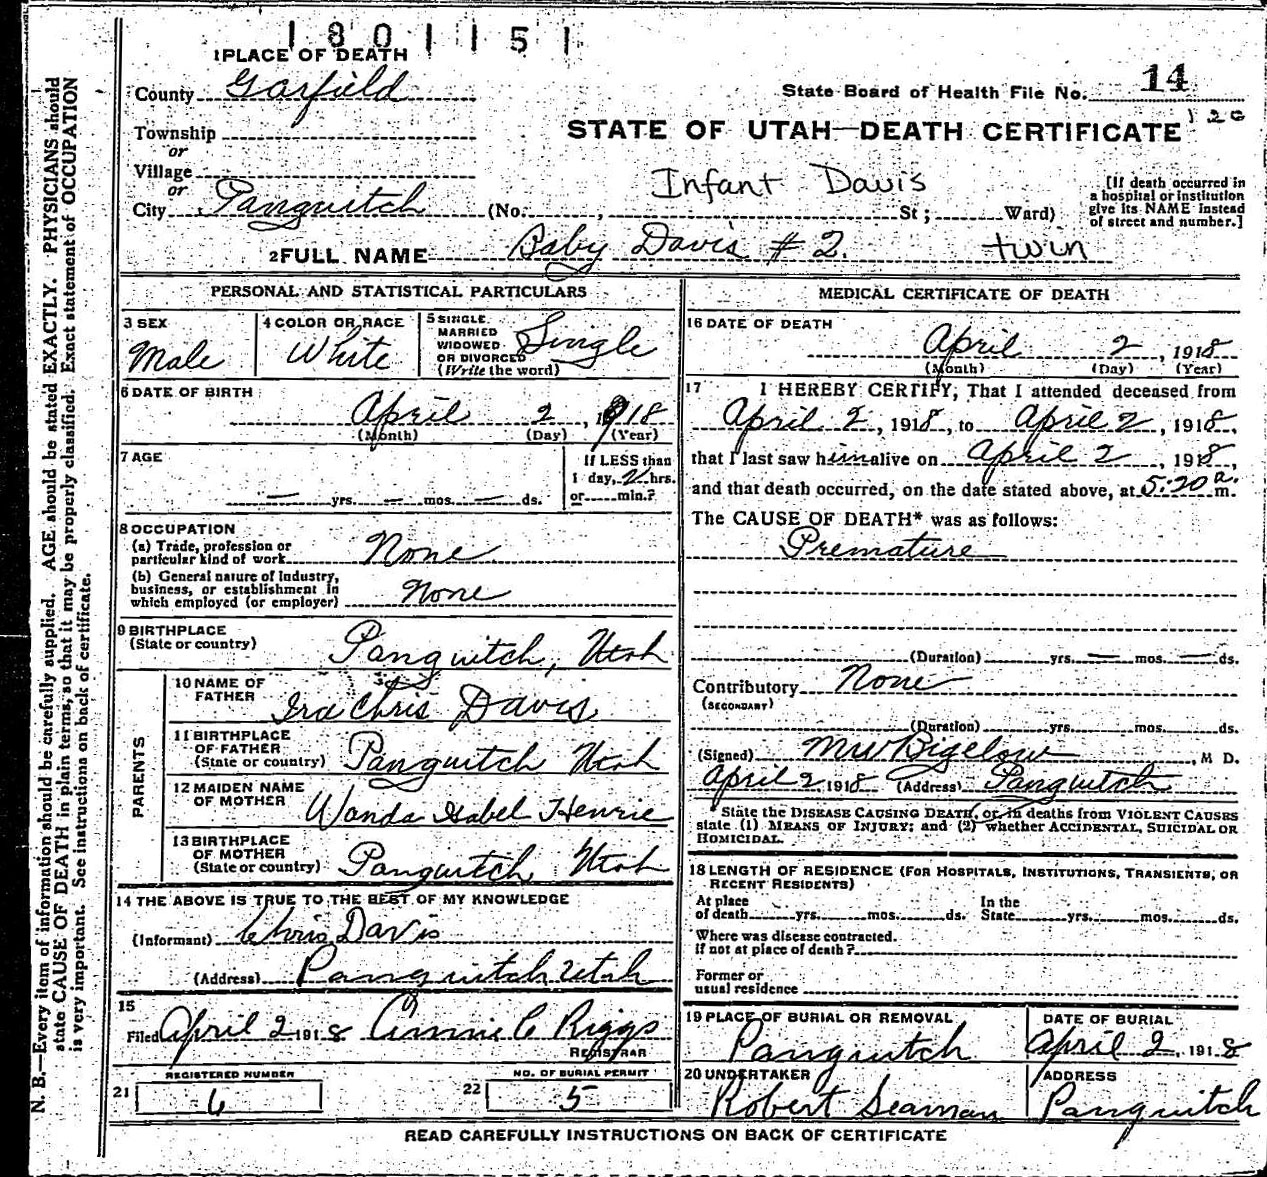 1801151
1 PLACE OF DEATH
County Garfield
State Board of Health File No. 14
120
Township
or
STATE OF UTAH—DEATH CERTIFICATE
Village
or
Infant Davis
City Panguitch (No. , St; Ward)
[If death occurred in
a hospital or institution
give its NAME instead
of street and number.]
2 FULL NAME Baby Davis #2. twin
PERSONAL AND STATISTICAL PARTICULARS
3 SEX
Male
4 COLOR OR RACE
White
5 SINGLE
MARRIED
WIDOWED
OR DIVORCED
(Write the word)
Single
6 DATE OF BIRTH
April 2, 1918
(Month) (Day) (Year)
7 AGE
— yrs. — mos. — ds.
If LESS than
1 day, 2 hrs.
or min.?
8 OCCUPATION
(a) Trade, profession or
particular kind of work None
(b) General nature of Industry,
business, or establishment in
which employed (or employer) None
9 BIRTHPLACE
(State or country) Panguitch, Utah
PARENTS
10 NAME OF
FATHER Ira Chris Davis
11 BIRTHPLACE
OF FATHER
(State or country) Panguitch Utah
12 MAIDEN NAME
OF MOTHER Wanda Isabel Henrie
13 BIRTHPLACE
OF MOTHER
(State or country) Panguitch, Utah
14 THE ABOVE IS TRUE TO THE BEST OF MY KNOWLEDGE
(Informant) Chris Davis
(Address) Panguitch Utah
15
Filed April 2 1918 Annie C Riggs
REGISTRAR
REGISTERED NUMBER
21 6
NO. OF BURIAL PERMIT
22 5
MEDICAL CERTIFICATE OF DEATH
16 DATE OF DEATH
April 2, 1918
(Month) (Day) (Year)
17 I HEREBY CERTIFY, That I attended deceased from
April 2, 1918, to April 2, 1918,
that I last saw him alive on April 2, 1918,
and that death occurred, on the date stated above, at 5:20 a. m.
The CAUSE OF DEATH* was as follows:
Premature
(Duration) yrs. — mos. — ds.
Contributory None
(SECONDARY)
(Duration) yrs. mos. ds.
(Signed) MW Bigelow, M D.
April 2, 1918 (Address) Panguitch
* State the DISEASE CAUSING DEATH, or, in deaths from VIOLENT CAUSES
state (1) MEANS OF INJURY; and (2) whether ACCIDENTAL, SUICIDAL OR
HOMICIDAL.
18 LENGTH OF RESIDENCE (FOR HOSPITALS, INSTITUTIONS, TRANSIENTS, OR
RECENT RESIDENTS)
At place
of death yrs. mos. ds.
In the
State yrs. mos. ds.
Where was disease contracted.
if not at place of death?
Former or
usual residence
19 PLACE OF BURIAL OR REMOVAL
Panguitch
DATE OF BURIAL
April 2, 1918
20 UNDERTAKER
Robert Seaman
ADDRESS
Panguitch
READ CAREFULLY INSTRUCTIONS ON BACK OF CERTIFICATE
N. B.—Every item of information should be carefully supplied. AGE should be stated EXACTLY. PHYSICIANS should
state CAUSE OF DEATH in plain terms, so that it may be properly classified. Exact statement of OCCUPATION
is very important. See instructions on back of certificate.